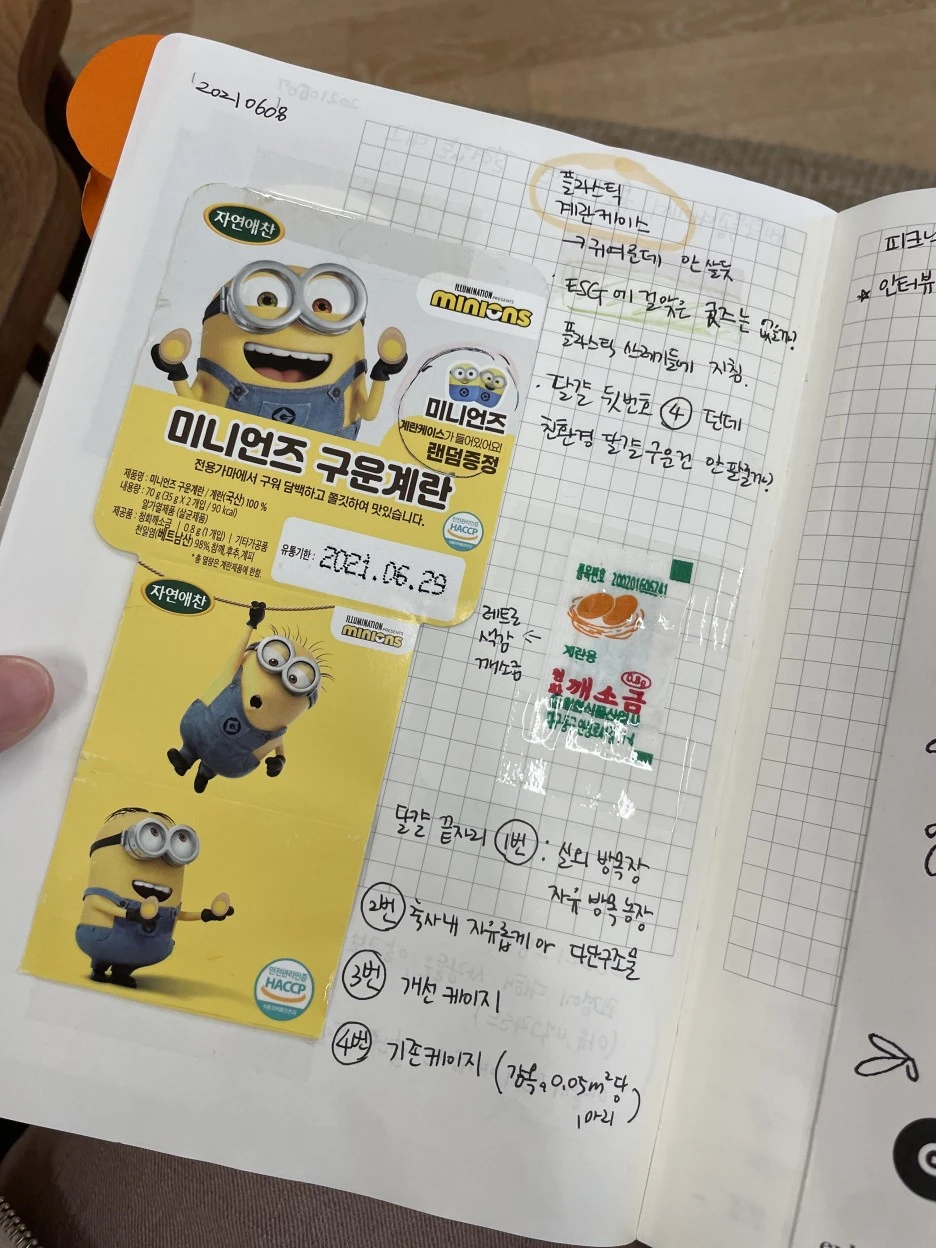 20210608
자연애찬
ILLUMINATION PRESENTS
minions
미니언즈
계란케이스가 들어있어요!
랜덤증정
미니언즈 구운계란
전용가마에서 구워 담백하고 쫄깃하여 맛있습니다.
제품명 : 미니언즈 구운계란 / 계란(국산) 100 %
내용량 : 70 g (35 g X 2 개입 / 90 kcal)
알가열제품 (살균제품)
제공품 : 청회깨소금 | 0.8 g (1 개입) | 기타가공품
천일염(베트남산) 98%, 참깨, 후추, 계피
* 총 열량은 계란제품에 한함.
안전관리인증
HACCP
유통기한 : 2021.06.29
자연애찬
ILLUMINATION PRESENTS
minions
안전관리인증
HACCP
플라스틱
계란케이스
→ 귀여운데 안 살듯
· ESG에 걸맞은 굿즈는 없을까?
플라스틱 쓰레기들에 지침.
· 달걀 뒷번호 ④ 던데
친환경 달걀 구운건 안 팔릴까?
품목번호 200201606241
계란용
0.8g
깨소금
레트로
색감 ←
깨소금
달걀 끝자리 1번 : 실외 방목장
자유 방목 농장
2번 축사내 자유롭게 but 다단구조물
3번 개선 케이지
4번 기존케이지 (0.05m²당
1마리)
피크닉
★ 인터뷰